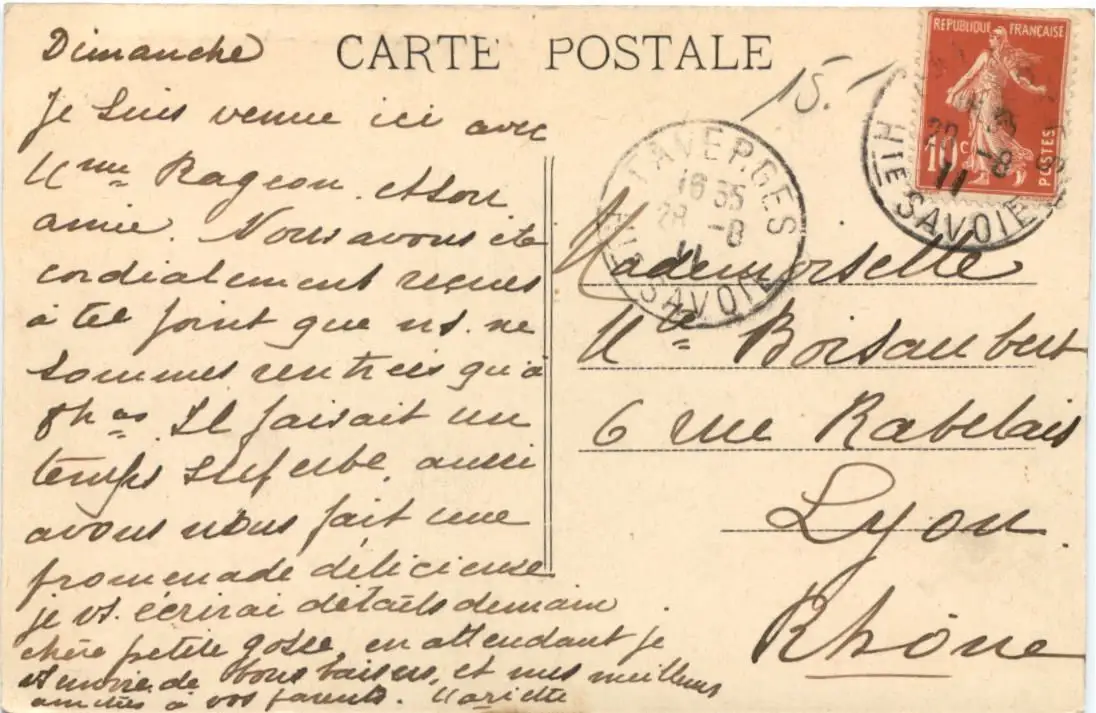 CARTE POSTALE
Dimanche
Je suis venue ici avec
Mme Rageon et son
amie. Nous avons été
cordialement reçues
à tel point que ns. ne
sommes rentrées qu'à
8h as. Il faisait un
temps superbe aussi
avons nous fait une
promenade délicieuse
je vs. écrirai détails demain
chère petite gosse, en attendant je
vs envoie de bons baisers, et mes meilleurs
amitiés à vos parents. Mariette
15.
REPUBLIQUE FRANÇAISE
10c
POSTES
28 -8
11
HTE SAVOIE
FAVERGES
16 35
28 -8
11
HTE SAVOIE
Mademoiselle
Mce Boisaubert
6 rue Rabelais
Lyon.
Rhône